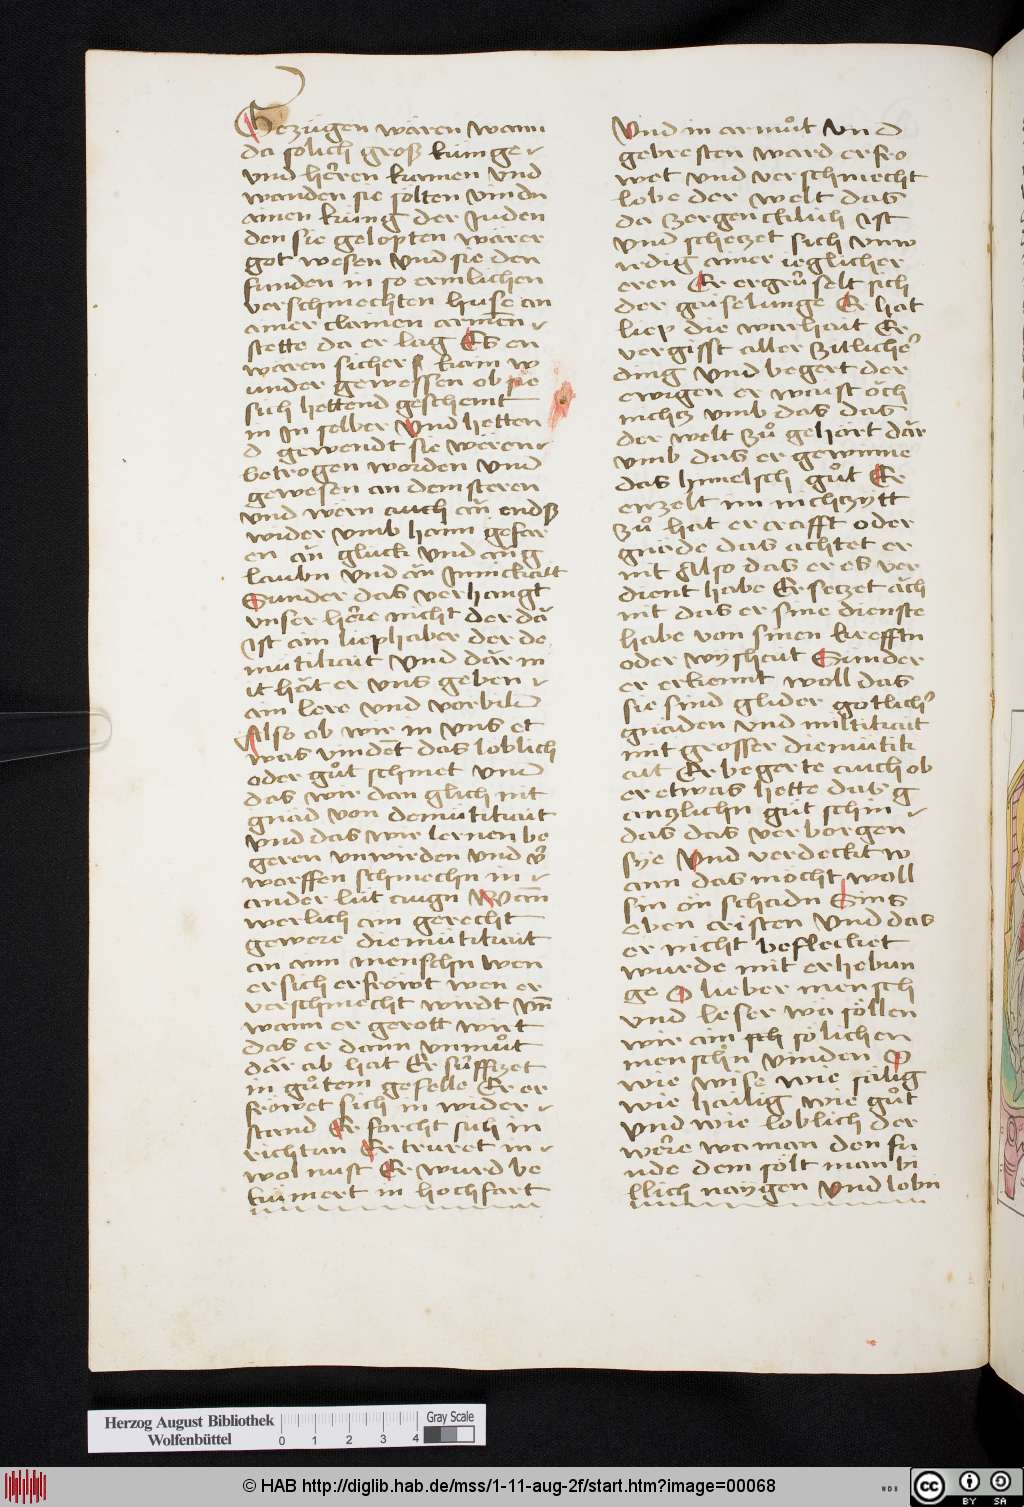 Gezügen wären wann
da solich groß künige
vnd herren kamen vnd
wanden sie sölten vindn
ainen küng der Juden
den sie gelopten wärer
got wesen vnd sie den
funden in so ermlichen
verschmechten huse an
ainer clainen armen
stette da er lag Es en
waren sicher kain w
under gewessen ob sie
sich hettend geschemt
in In selber Vnd hetten
d gewendt sie weren
betrogen worden vnd
gewesen an dem steren
vnd wern auch än endß
wider vmb haim gefar
en än gluck vnd än g
laubn vnd än Innickait
Sunder das verhangt
vnser herre nicht der da
Ist ain liephaber der de
mütikait vnd där in
it hät er vns geben
ain lere vnd vorbild
Also ob wir in vns et
was vindet das loblich
oder gůt schinet vnd
das wir dan glich nit
gnäd von demütikait
vnd das wir lernen be
geren vnwirden vnd v̄
warffen schmechn in
ander lüt augn Wan̄
werlich ain gerecht
gewere diemütikait
an aim menschn wen
er sich erfröwt wen er
verschmecht wirdt vnn
wann er gerott wirt
das er dann vnmůt
där ab hat Er süfftzet
in gůtem gefelle Er er
fröwet sich in wider
stand Er forcht sich in
richtun Er truret in
wol nust Er wurd be
kümert in hochfart
Vnd in armůt vnd
gebresten ward erfrö
wet vnd verschmecht
lobe der welt das
da zergencklich ist
vnd schetzet sich vnw
irdig ainer ieglicher
eren Er ergrüselt sich
der gaiselunge Er hat
liep die warhait Er
vergisst aller zitliche
ding vnd begert der
ewigen er waist öch
nichtz vmb das das
der welt zů gehärt där
vmb das er gewinne
das himelsch gůt Er
enzelt im nichzytt
zů hat er crafft oder
gnäde das achtet er
nit Also das er es ver
dient habe Er setzet äch
nit das er sine dienste
habe von sinen krefftn
oder wyshait Sunder
er erkennt woll das
sie sind glider gotlich
gnäden vnd miltikait
mit grosser diemütik
ait Er begerte auch ob
er etwas hette das g
antzlichn gůt schin
das das verborgen
sye Vnd verdeckt w
ann das möcht woll
sin än schadn Sins
eben cristen Vnd das
er nicht beflecket
wurde mit erhebun
ge O lieber mensch
vnd leser wa söllen
wir ain sch sölichen
menschn vinden O
wie wise wie sälig
wie hailig wie gůt
vnd wie loblich der
were wa man den fu
nde dem sölt man bi
llich naygen vnd lobn
Herzog August Bibliothek
Wolfenbüttel
0 1 2 3 4
Gray Scale
© HAB http://diglib.hab.de/mss/1-11-aug-2f/start.htm?image=00068
WDB
cc BY SA